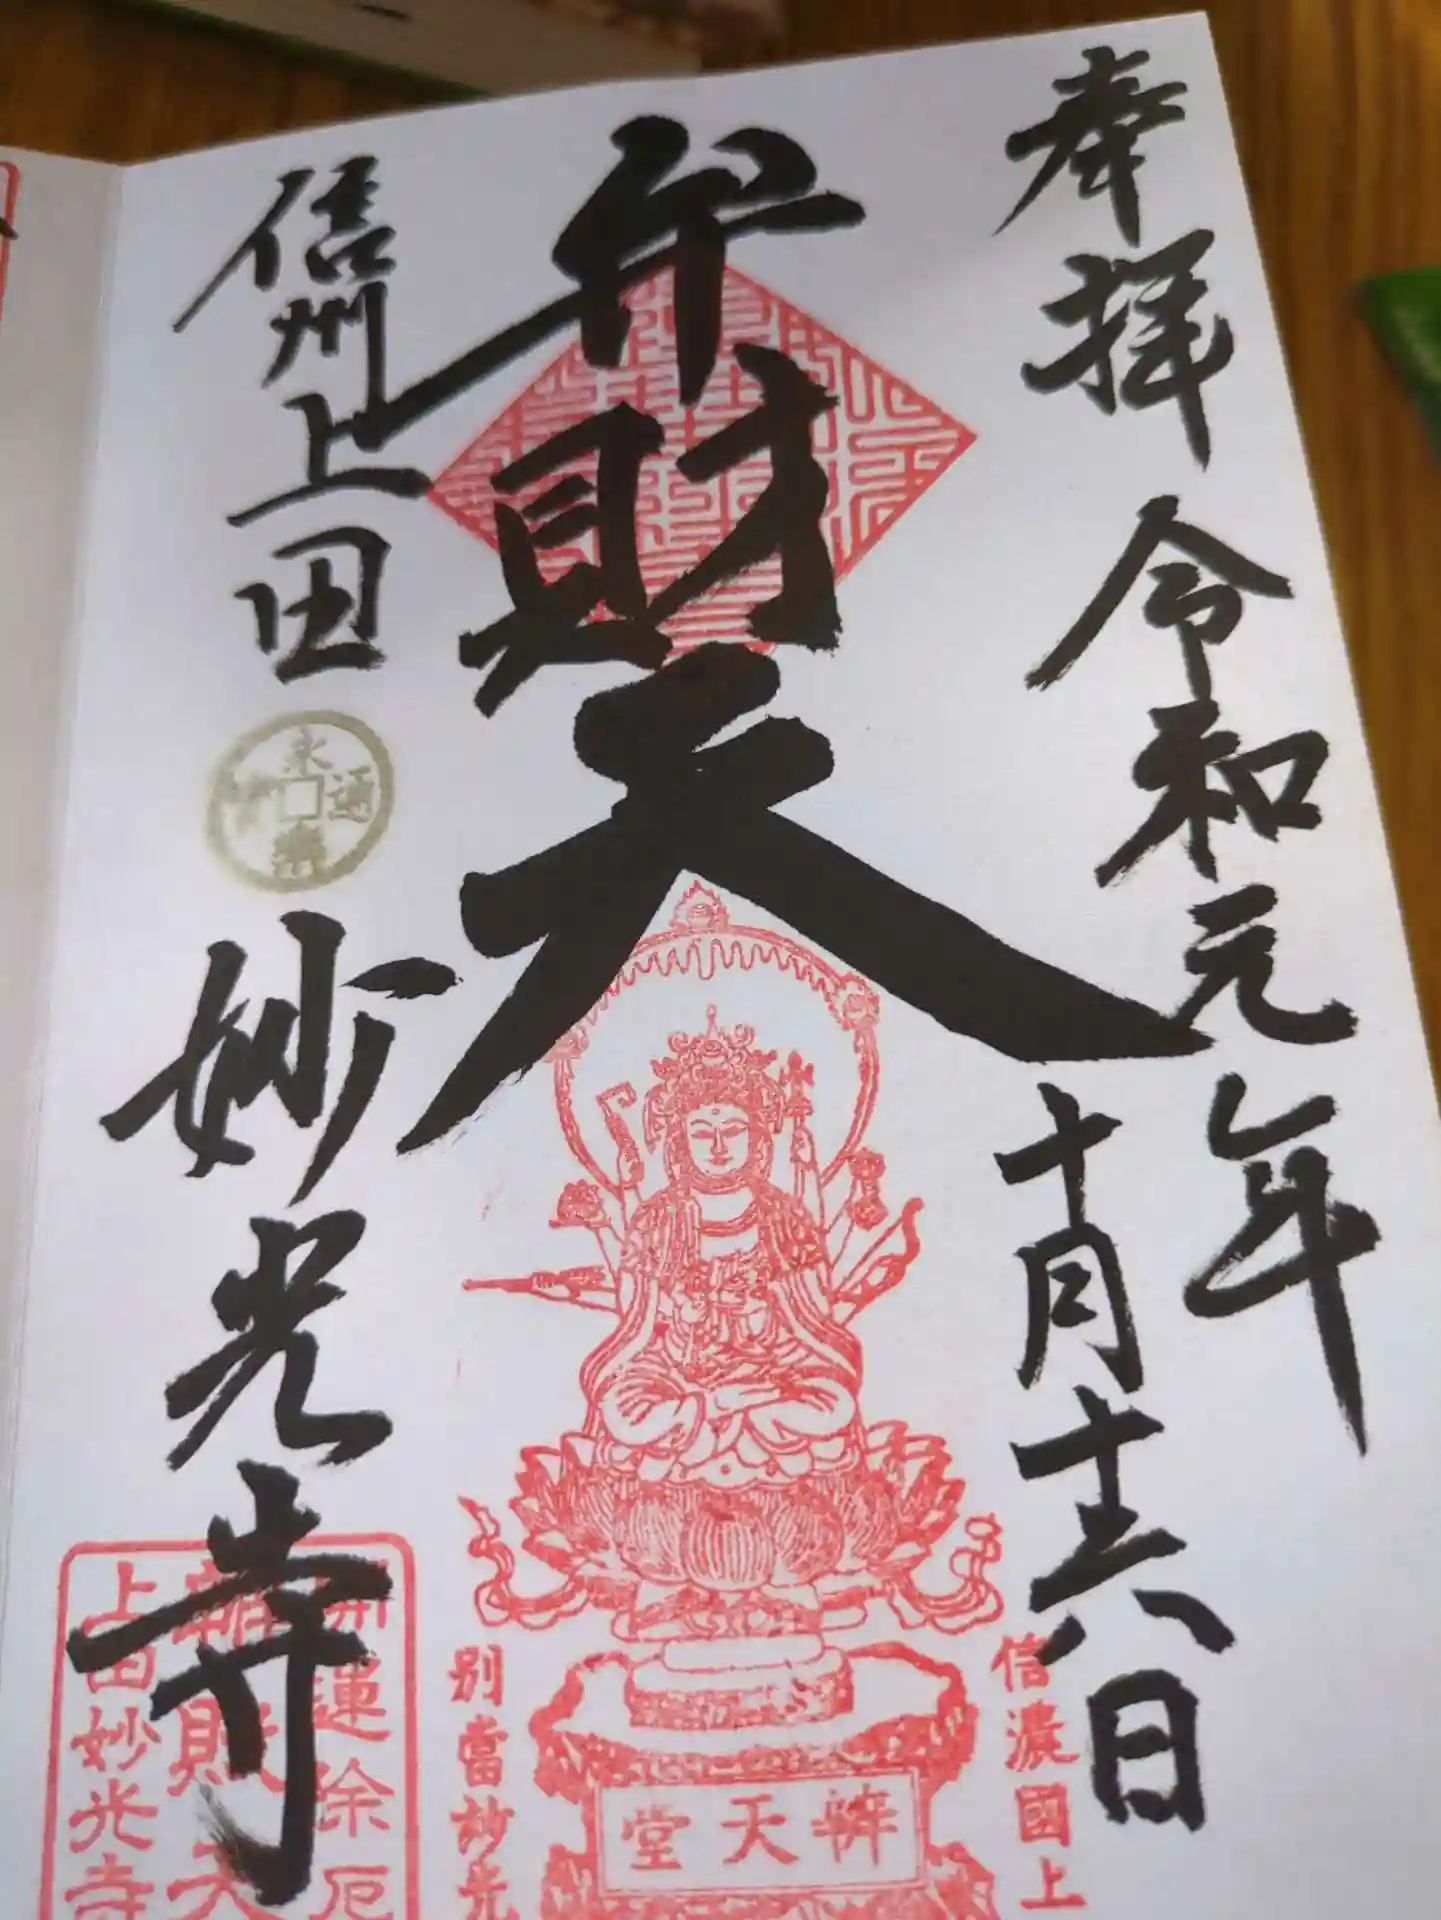 奉拝 令和元年
十月十六日
弁財天
信州上田 妙光寺
永樂通
信濃國上
辨天堂
別當妙光
開運除厄
財天
上田妙光寺